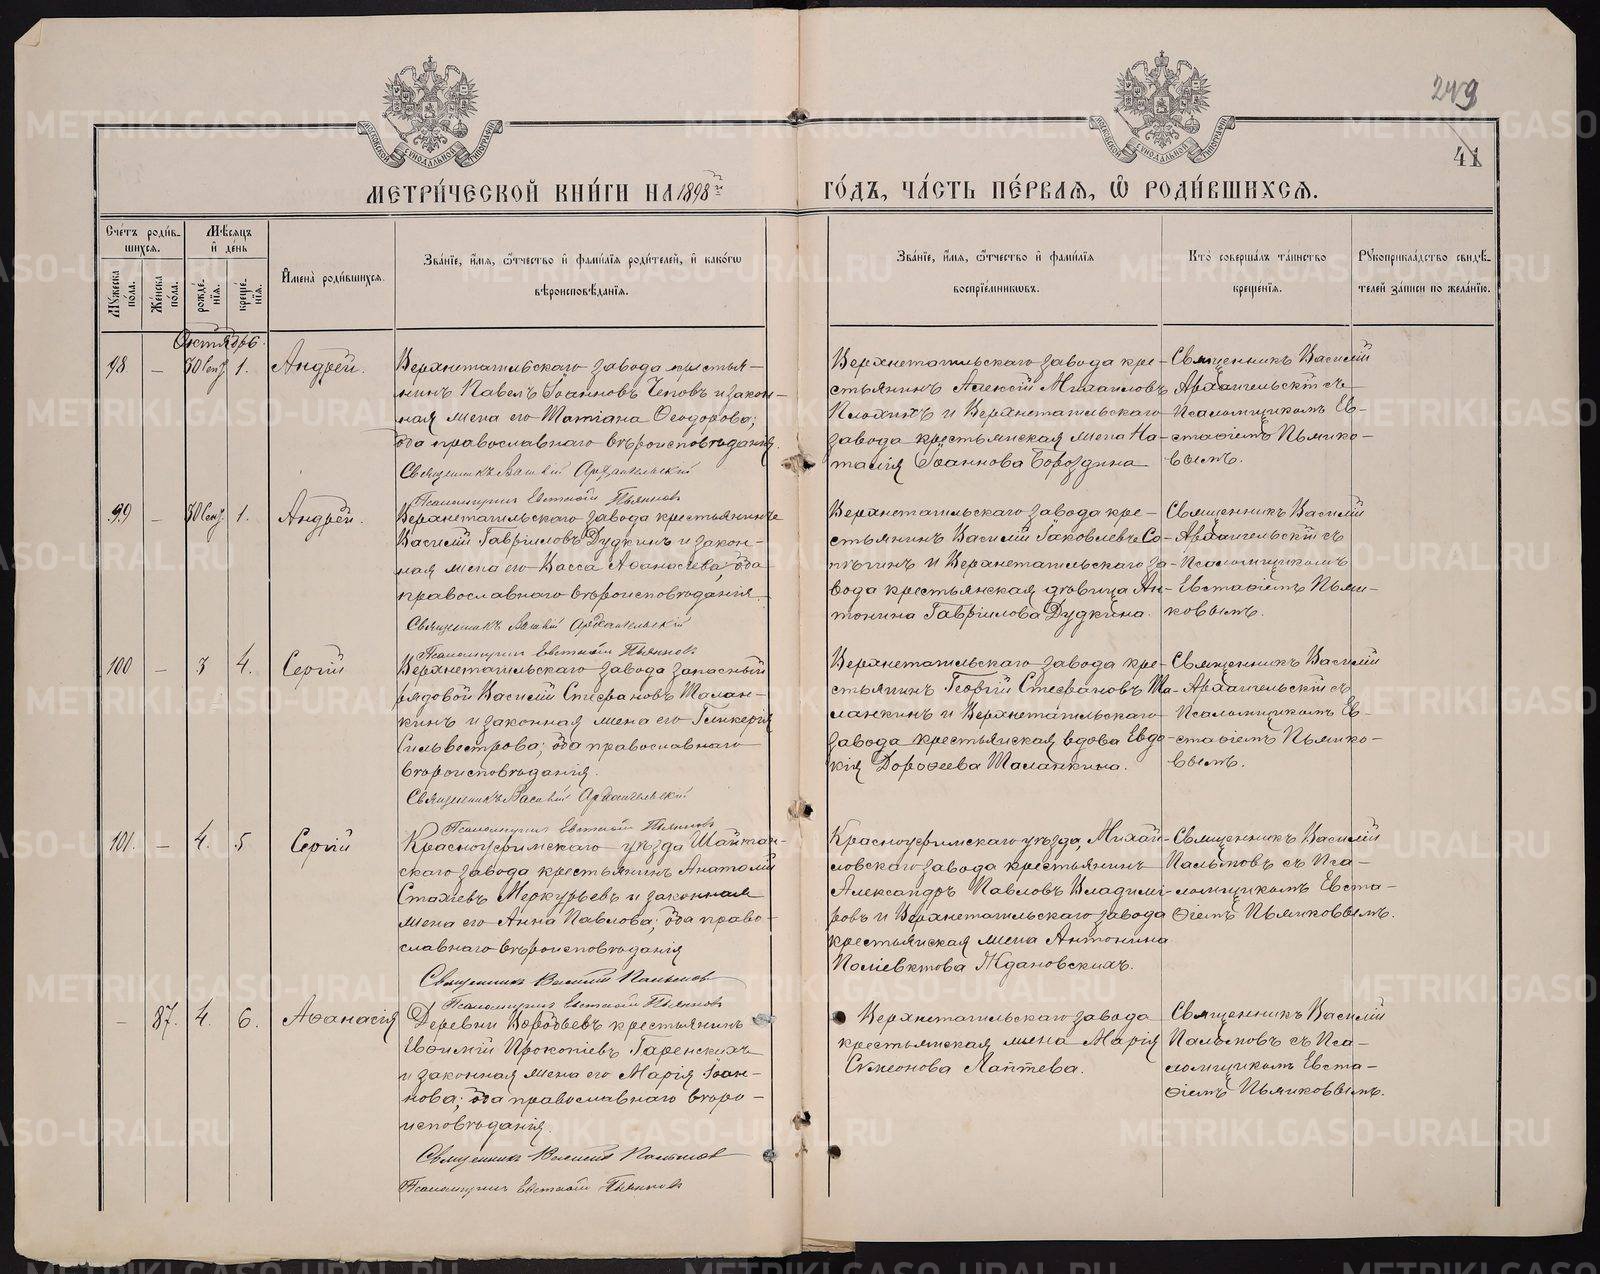 249
41
МОСКОВСКОЙ СѴНОДАЛЬНОЙ ТИПОГРАФІИ
МОСКОВСКОЙ СѴНОДАЛЬНОЙ ТИПОГРАФІИ
МЕТРИ́ЧЕСКОЙ КНИ́ГИ НА 1898й
ГО́ДЪ, ЧА́СТЬ ПЕ́РВАЯ, Ѡ РОДИ́ВШИХСЯ.
Сче́тъ роди́в-
шихся.
Му́жеска по́ла.
Же́нска по́ла.
Мѣ́сяцъ
и҆ де́нь
рожде́-
нїя.
креще́-
нїя.
И҆мена̀ роди́вшихся.
Зва́нїе, и҆́мя, ѻ҆́тчество и҆ фами́лїя роди́телей, и҆ како́гѡ
вѣроисповѣ́данїя.
Зва́нїе, и҆́мя, ѻ҆́тчество и҆ фами́лїя
воспрїе́мникѡвъ.
Кто̀ соверша́лъ та́инство
креще́нїя.
Рꙋкоприкла́дство свидѣ́-
телей за́писи по жела́нїю.
Октябрь.
98
—
30 Сент.
1.
Андрей.
Верхнетагильскаго завода крестья-
нинъ Павелъ Іоанновъ Чеповъ и закон-
ная жена его Татіана Ѳеодорова;
оба православнаго вѣроисповѣданія.
Священникъ Василій Архангельскій
Псаломщикъ Евстафій Пьянков
Верхнетагильскаго завода кре-
стьянинъ Алексій Михаиловъ
Плохихъ и Верхнетагильскаго
завода крестьянская жена На-
талія Іоаннова Бороздина
Священникъ Василій
Архангельскій съ
Псаломщикомъ Ев-
стафіемъ Пьянко-
вымъ.
99
—
30 Сент.
1.
Андрей.
Верхнетагильскаго завода крестьянинъ
Василій Гавріиловъ Дудкинъ и закон-
ная жена его Васса Аѳанасіева; оба
православнаго вѣроисповѣданія.
Священникъ Василій Архангельскій
Псаломщикъ Евстафій Пьянков
Верхнетагильскаго завода кре-
стьянинъ Василій Іаковлевъ Со-
пѣгинъ и Верхнетагильскаго за-
вода крестьянская дѣвица Ан-
тонина Гавріилова Дудкина.
Священникъ Василій
Архангельскій съ
Псаломщикомъ
Евстафіемъ Пьян-
ковымъ.
100
—
3
4.
Сергій
Верхнетагильскаго завода запасный
рядовой Василій Стефановъ Талан-
кинъ и законная жена его Гликерія
Сильвестрова; оба православнаго
вѣроисповѣданія.
Священникъ Василій Архангельскій
Псаломщикъ Евстафій Пьянков
Верхнетагильскаго завода кре-
стьянинъ Георгій Стефановъ Та-
ланкинъ и Верхнетагильскаго
завода крестьянская вдова Евдо-
кія Дороѳеева Таланкина.
Священникъ Василій
Архангельскій съ
Псаломщикомъ Ев-
стафіемъ Пьянко-
вымъ.
101.
—
4.
5
Сергій
Красноуфимскаго уѣзда Шайтан-
скаго завода крестьянинъ Анатолій
Стахіевъ Меркурьевъ и законная
жена его Анна Павлова; оба право-
славнаго вѣроисповѣданія
Священникъ Василій Пальмовъ
Псаломщикъ Евстафій Пьянков
Красноуфимскаго уѣзда, Михай-
ловскаго завода крестьянинъ
Александръ Павловъ Владимі-
ровъ и Верхнетагильскаго завода
крестьянская жена Антонина
Поліевктова Ждановскихъ.
Священникъ Василій
Пальмовъ съ Пса-
ломщикомъ Евста-
фіемъ Пьянковымъ.
—
87.
4.
6.
Аѳанасія
Деревни Воробьевъ крестьянинъ
Евѳимій Прокопіевъ Гаренскихъ
и законная жена его Марія Іоан-
нова; оба православнаго вѣро-
исповѣданія.
Священникъ Василій Пальмовъ
Псаломщикъ Евстафій Пьянков
Верхнетагильскаго завода
крестьянская жена Марія
Симеонова Лаптева.
Священникъ Василій
Пальмовъ съ Пса-
ломщикомъ Евста-
фіемъ Пьянковымъ.
METRIKI.GASO-URAL.RU